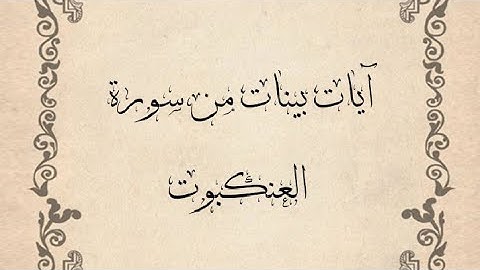 آيات بينات من سورة
العنكبوت